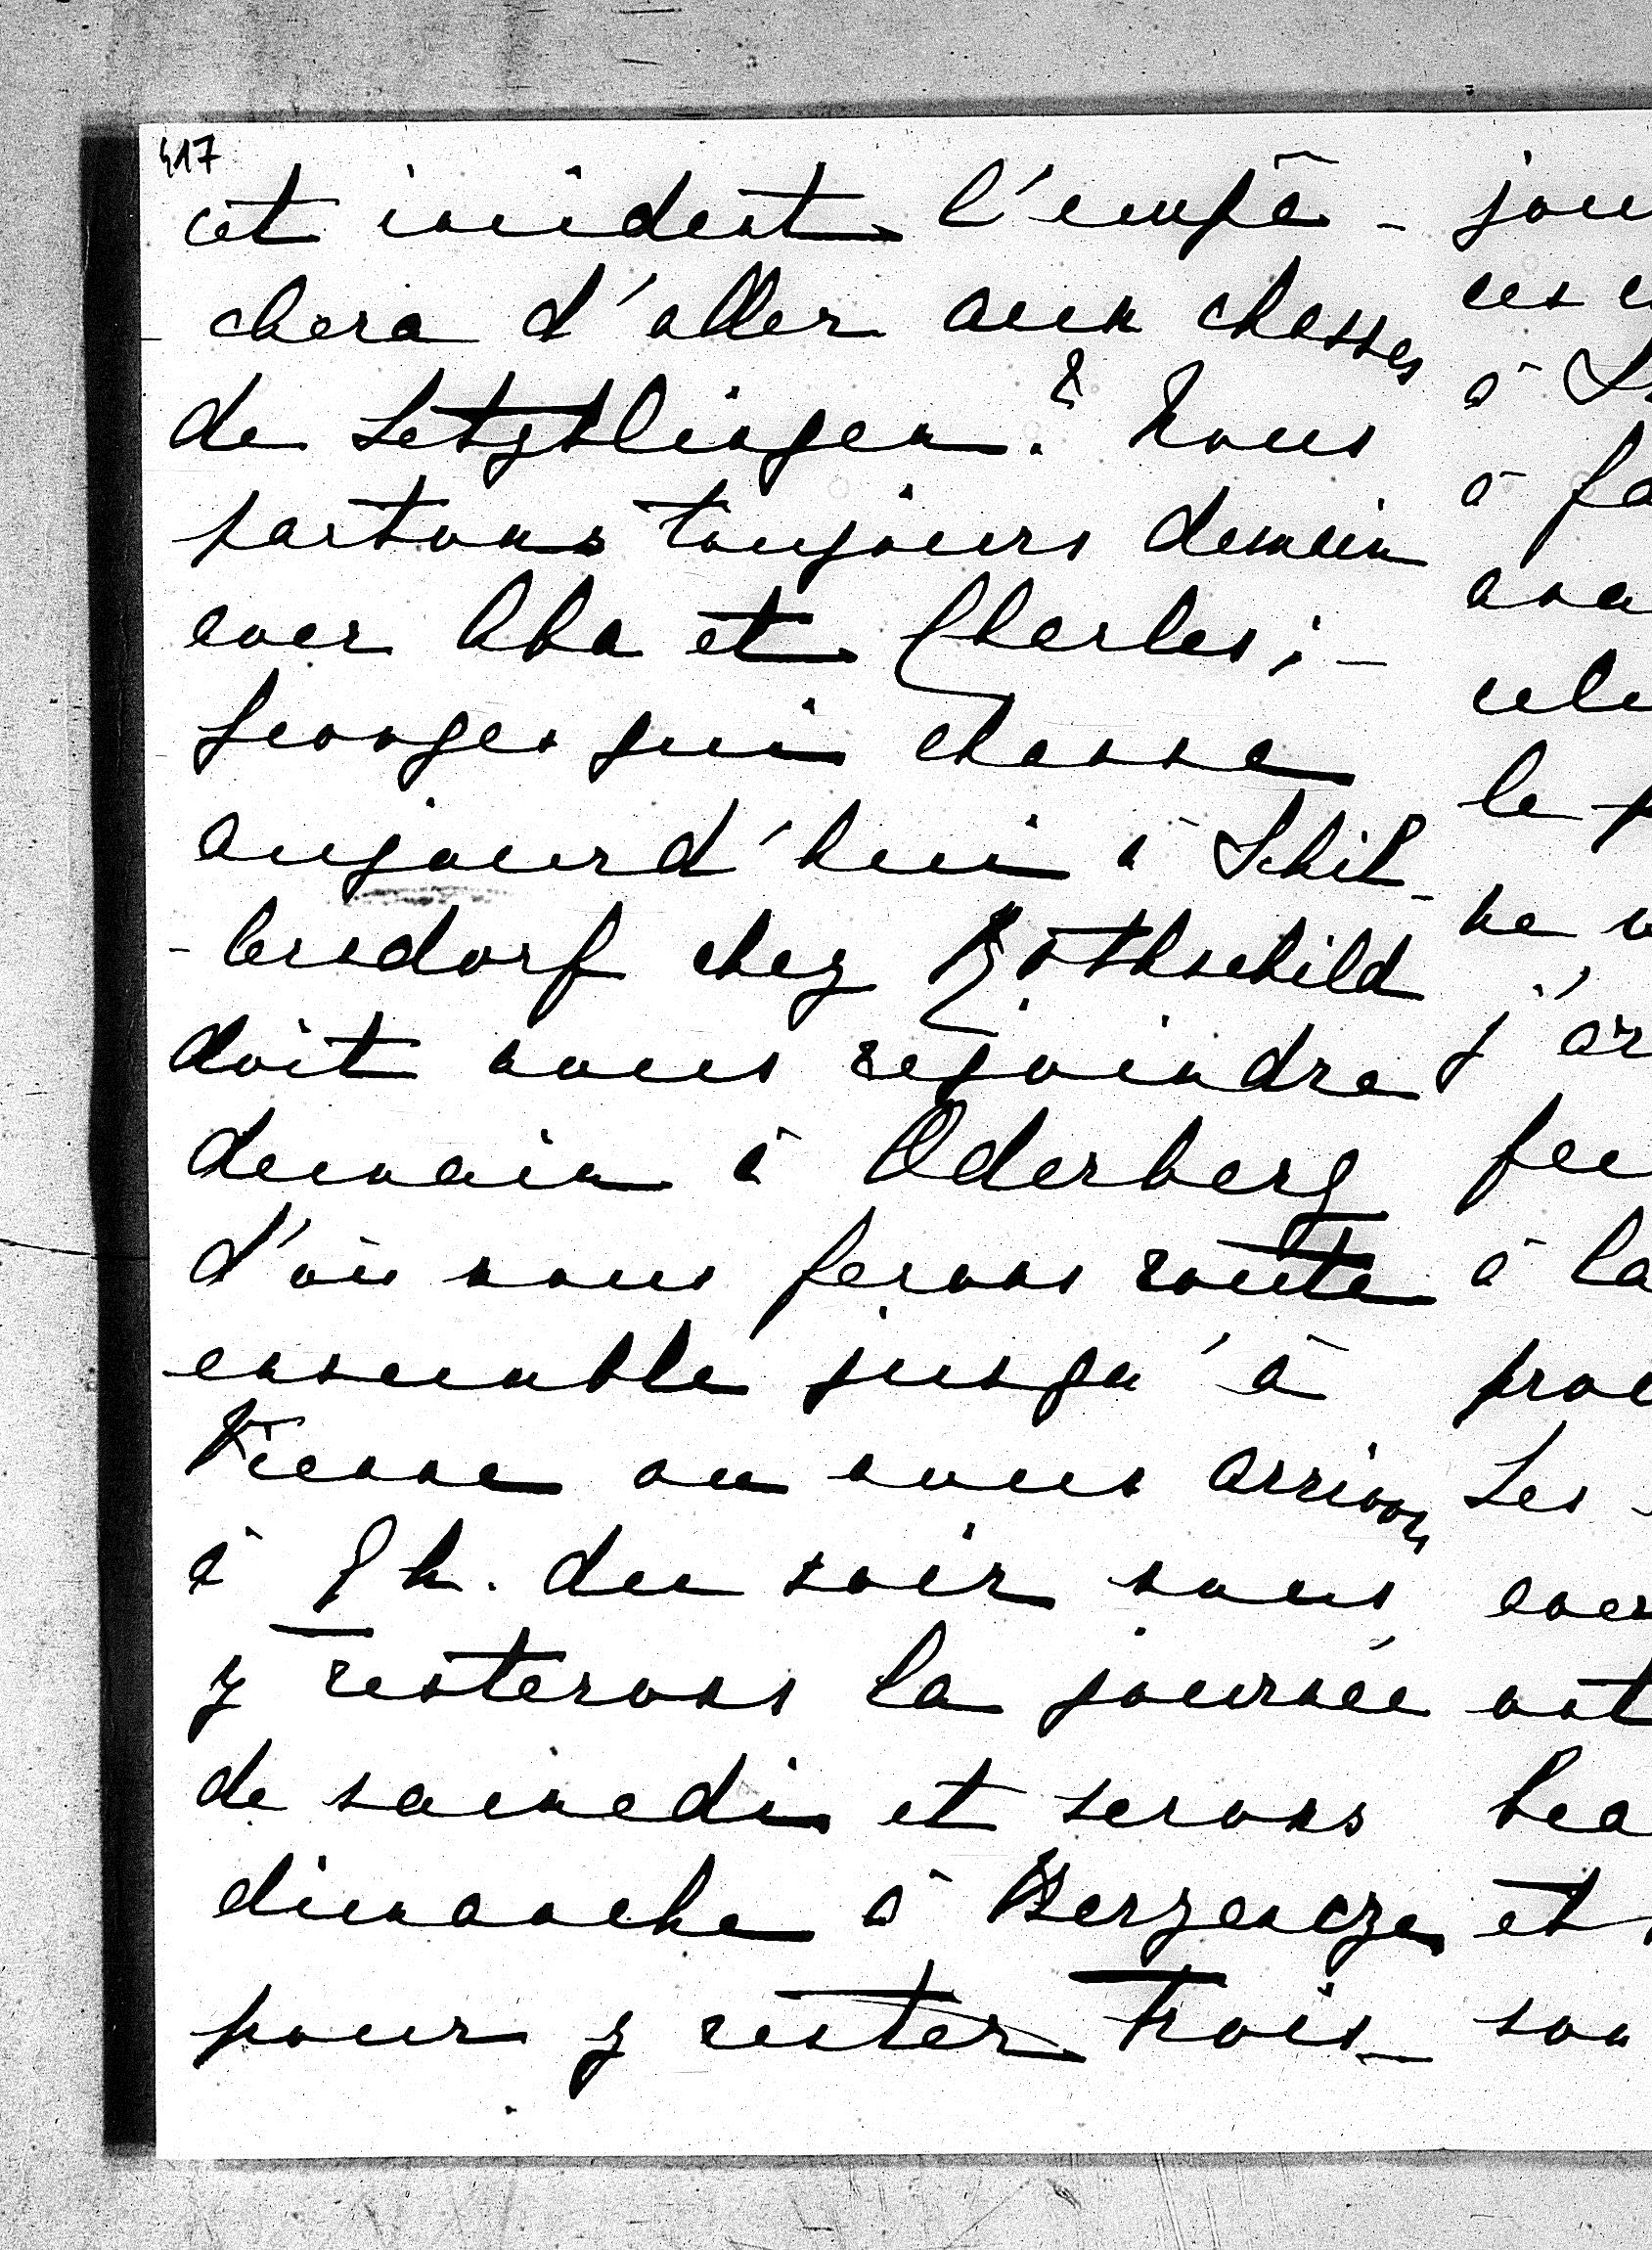 417
cet incident l'empê-
-chera d'aller aux chasses
de Letzlingen? Nous
partons toujours demain
avec Aba et Charles;-
Georges qui chasse
aujourd'hui à Schil-
-lersdorf chez Rothschild
doit nous rejoindre
demain à Oderberg
d'où nous ferons route
ensemble jusqu'à
Vienne ou nous arrivons
à 9 h. du soir nous
y resterons la journée
de samedi et serons
dimanche à Berzencze
pour y rester trois
jou
ces
à
à fa
ava
le p
ne v
j'ar
feu
à la
prov
Les
avec
ont
bea
et
son